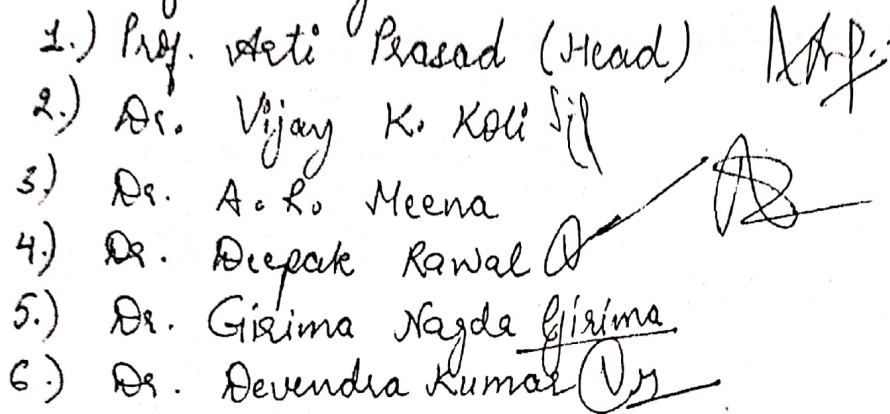 1.) Prof. Arti Prasad (Head)
2.) Dr. Vijay K. Koli
3.) Dr. A. R. Meena
4.) Dr. Deepak Rawal
5.) Dr. Girima Nagda Girima
6.) Dr. Devendra Kumar